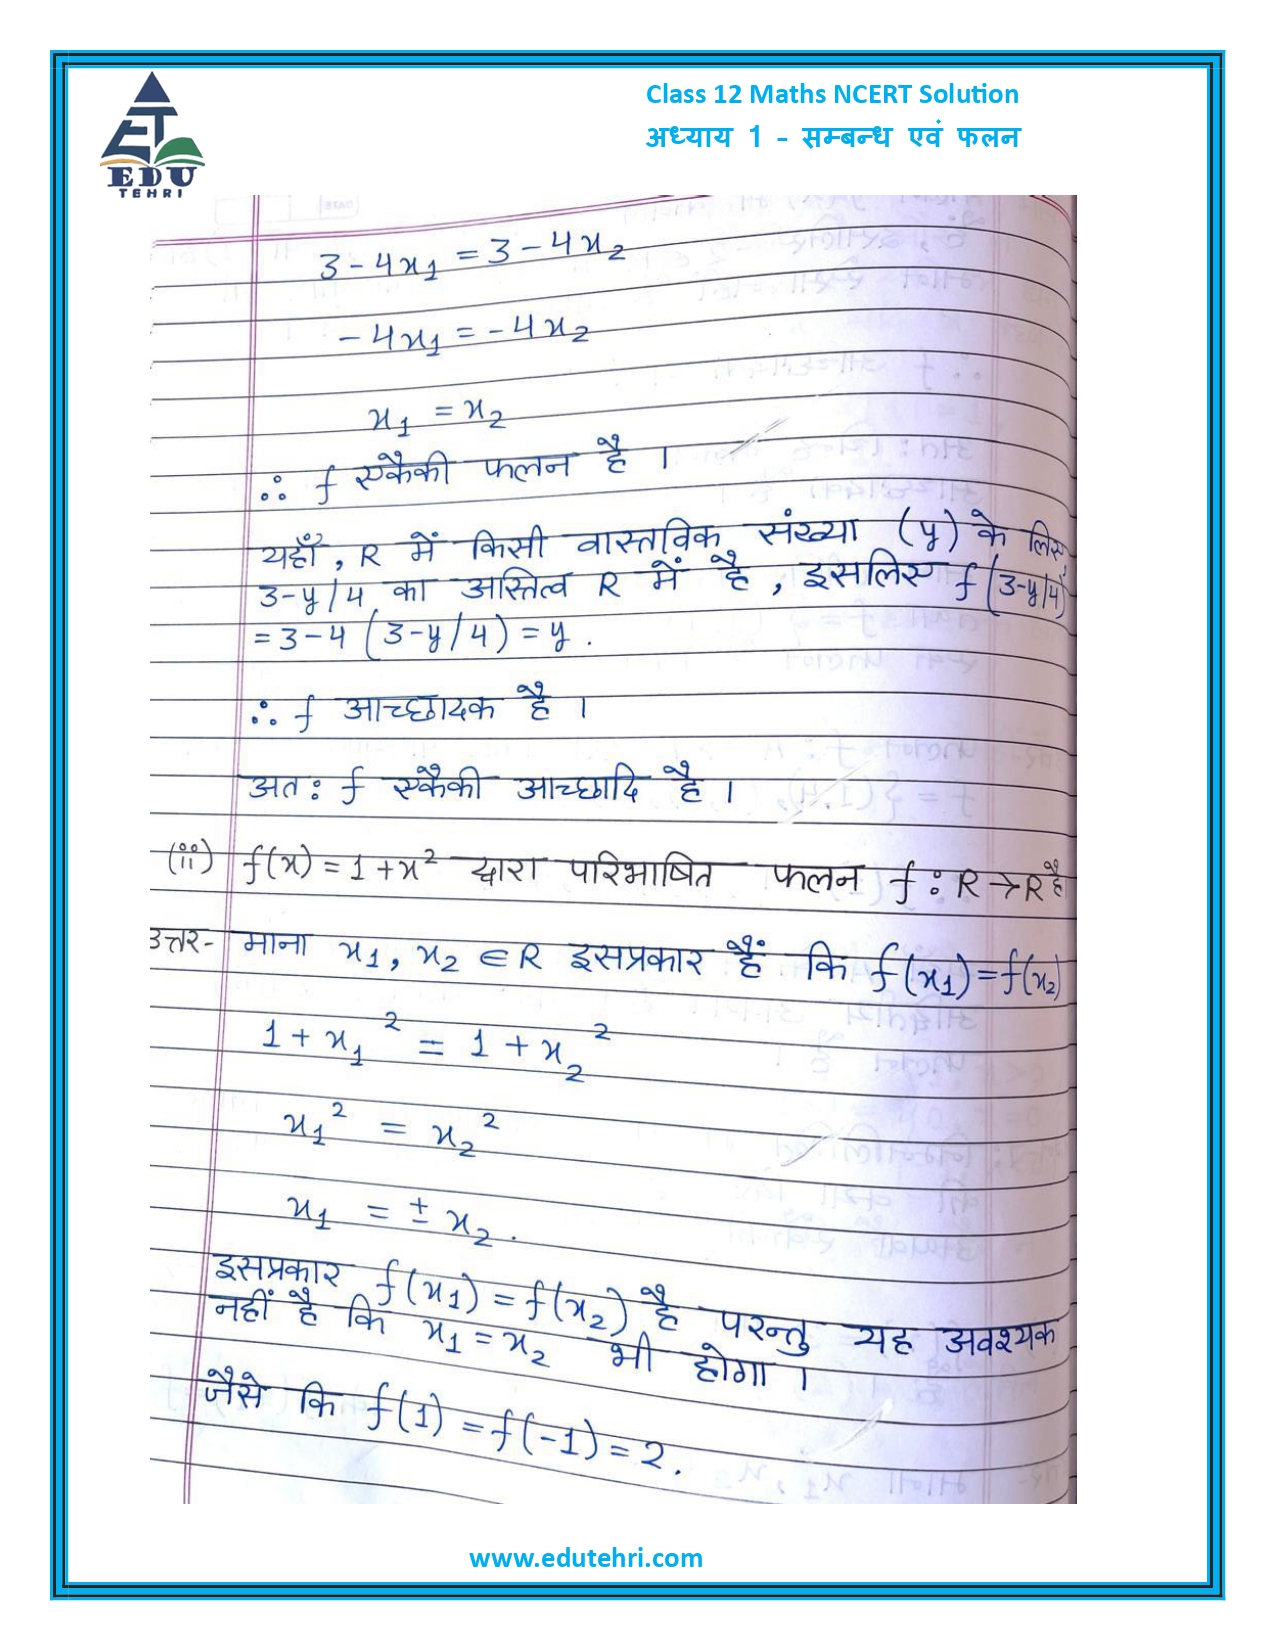 ET
EDU
TEHRI
Class 12 Maths NCERT Solution
अध्याय 1 - सम्बन्ध एवं फलन
3-4x₁ = 3-4x₂
-4x₁ = -4x₂
x₁ = x₂
∴ f एकैकी फलन है ।
यहाँ, R में किसी वास्तविक संख्या (y) के लिए
3-y/4 का अस्तित्व R में है, इसलिए f(3-y/4)
= 3-4 (3-y/4) = y.
∴ f आच्छादक है ।
अत: f एकैकी आच्छादि है ।
(ii) f(x) = 1+x² द्वारा परिभाषित फलन f : R→R है
उत्तर- माना x₁, x₂ ∈R इसप्रकार हैं कि f(x₁)=f(x₂)
1 + x₁² = 1 + x₂²
x₁² = x₂²
x₁ = ± x₂.
इसप्रकार f(x₁) = f(x₂) है परन्तु यह अवश्यक
नहीं है कि x₁ = x₂ भी होगा ।
जैसे कि f(1) = f(-1) = 2.
www.edutehri.com